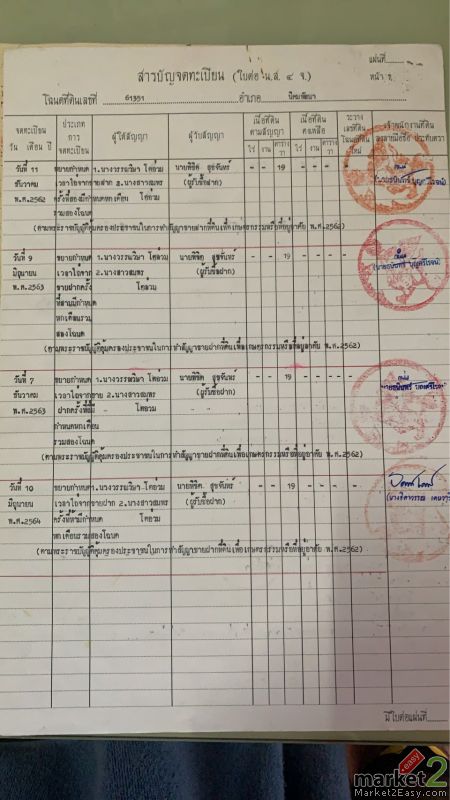 แผ่นที่
สารบัญจดทะเบียน (ใบต่อ น.ส. ๔ จ.)
หน้า ๆ
โฉนดที่ดินเลขที่ 61351 อำเภอ นิคมพัฒนา
จดทะเบียน วัน เดือน ปี
ประเภทการจดทะเบียน
ผู้ให้สัญญา
ผู้รับสัญญา
เนื้อที่ดินตามสัญญา
ไร่ งาน ตารางวา
เนื้อที่ดินคงเหลือ
ไร่ งาน ตารางวา
ระวาง เลขที่ดิน โฉนดที่ดินใหม่
เจ้าพนักงานที่ดินลงลายมือชื่อ ประทับตรา
วันที่ 11 ขยายกำหนด 1.นางวรรณวิมา โตอ่วม นายพิชิต สุขจันทร์ - - 19 - - -
ธันวาคม เวลาไถ่จากขายฝาก 2.นางสาวสมพร (ผู้รับซื้อฝาก)
พ.ศ.2562 ครั้งที่สองมีกำหนดหกเดือน โตอ่วม
รวมสองโฉนด
(ตามพระราชบัญญัติคุ้มครองประชาชนในการทำสัญญาขายฝากที่ดินเพื่อเกษตรกรรมหรือที่อยู่อาศัย พ.ศ.2562)
วันที่ 9 ขยายกำหนด 1.นางวรรณวิมา โตอ่วม นายพิชิต สุขจันทร์ - - 19 - - -
มิถุนายน เวลาไถ่จาก 2.นางสาวสมพร (ผู้รับซื้อฝาก)
พ.ศ.2563 ขายฝากครั้ง โตอ่วม
ที่สามมีกำหนด
หกเดือนรวม
สองโฉนด
(ตามพระราชบัญญัติคุ้มครองประชาชนในการทำสัญญาขายฝากที่ดินเพื่อเกษตรกรรมหรือที่อยู่อาศัย พ.ศ.2562)
วันที่ 7 ขยายกำหนด 1.นางวรรณวิมา โตอ่วม นายพิชิต สุขจันทร์ - - 19 - - -
ธันวาคม เวลาไถ่จากขาย 2.นางสาวสมพร (ผู้รับซื้อฝาก)
พ.ศ.2563 ฝากครั้งที่สี่มี โตอ่วม
กำหนดหกเดือน
รวมสองโฉนด
(ตามพระราชบัญญัติคุ้มครองประชาชนในการทำสัญญาขายฝากที่ดินเพื่อเกษตรกรรมหรือที่อยู่อาศัย พ.ศ.2562)
วันที่ 10 ขยายกำหนด 1.นางวรรณวิมา โตอ่วม นายพิชิต สุขจันทร์ - - 19 - - -
มิถุนายน เวลาไถ่จากขายฝาก 2.นางสาวสมพร (ผู้รับซื้อฝาก)
พ.ศ.2564 ครั้งที่ห้ามีกำหนด โตอ่วม
หกเดือนรวมสองโฉนด
(ตามพระราชบัญญัติคุ้มครองประชาชนในการทำสัญญาขายฝากที่ดินเพื่อเกษตรกรรมหรือที่อยู่อาศัย พ.ศ.2562)
มีใบต่อแผ่นที่
market2easy
Market2Easy.com